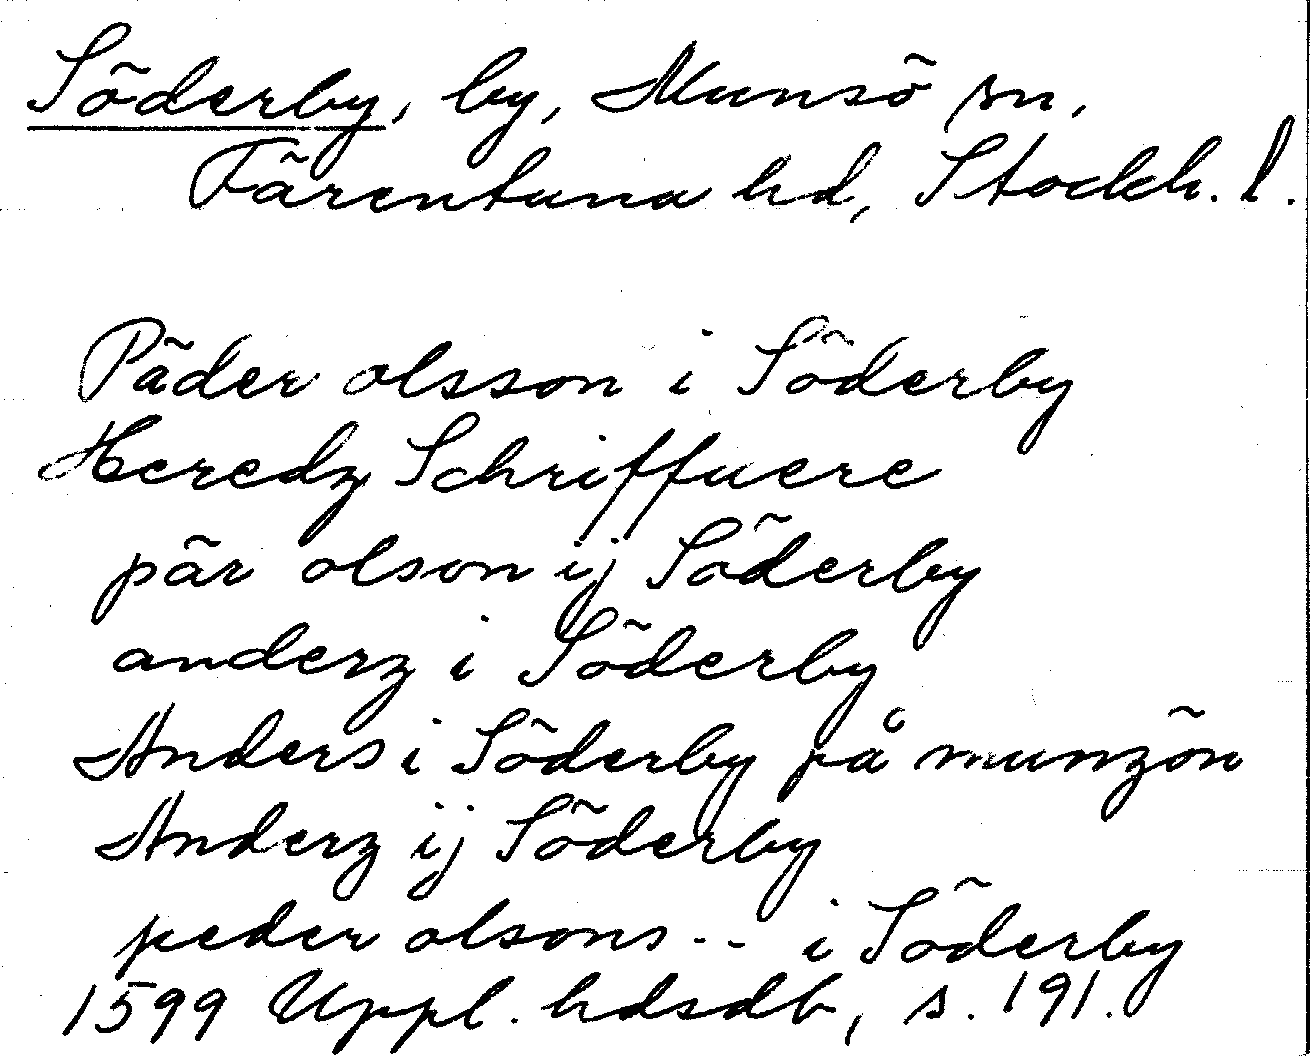 Söderby, by, Munsö sn,
Färentuna hd, Stockh. l.
Päder olsson i Söderby
Heredz Schriffuere
pär olson ij Söderby
anderz i Söderby
Anders i Söderby på munzön
Anderz ij Söderby
peder olsons -- i Söderby
1599 Uppl. hdsdb, s. 191.